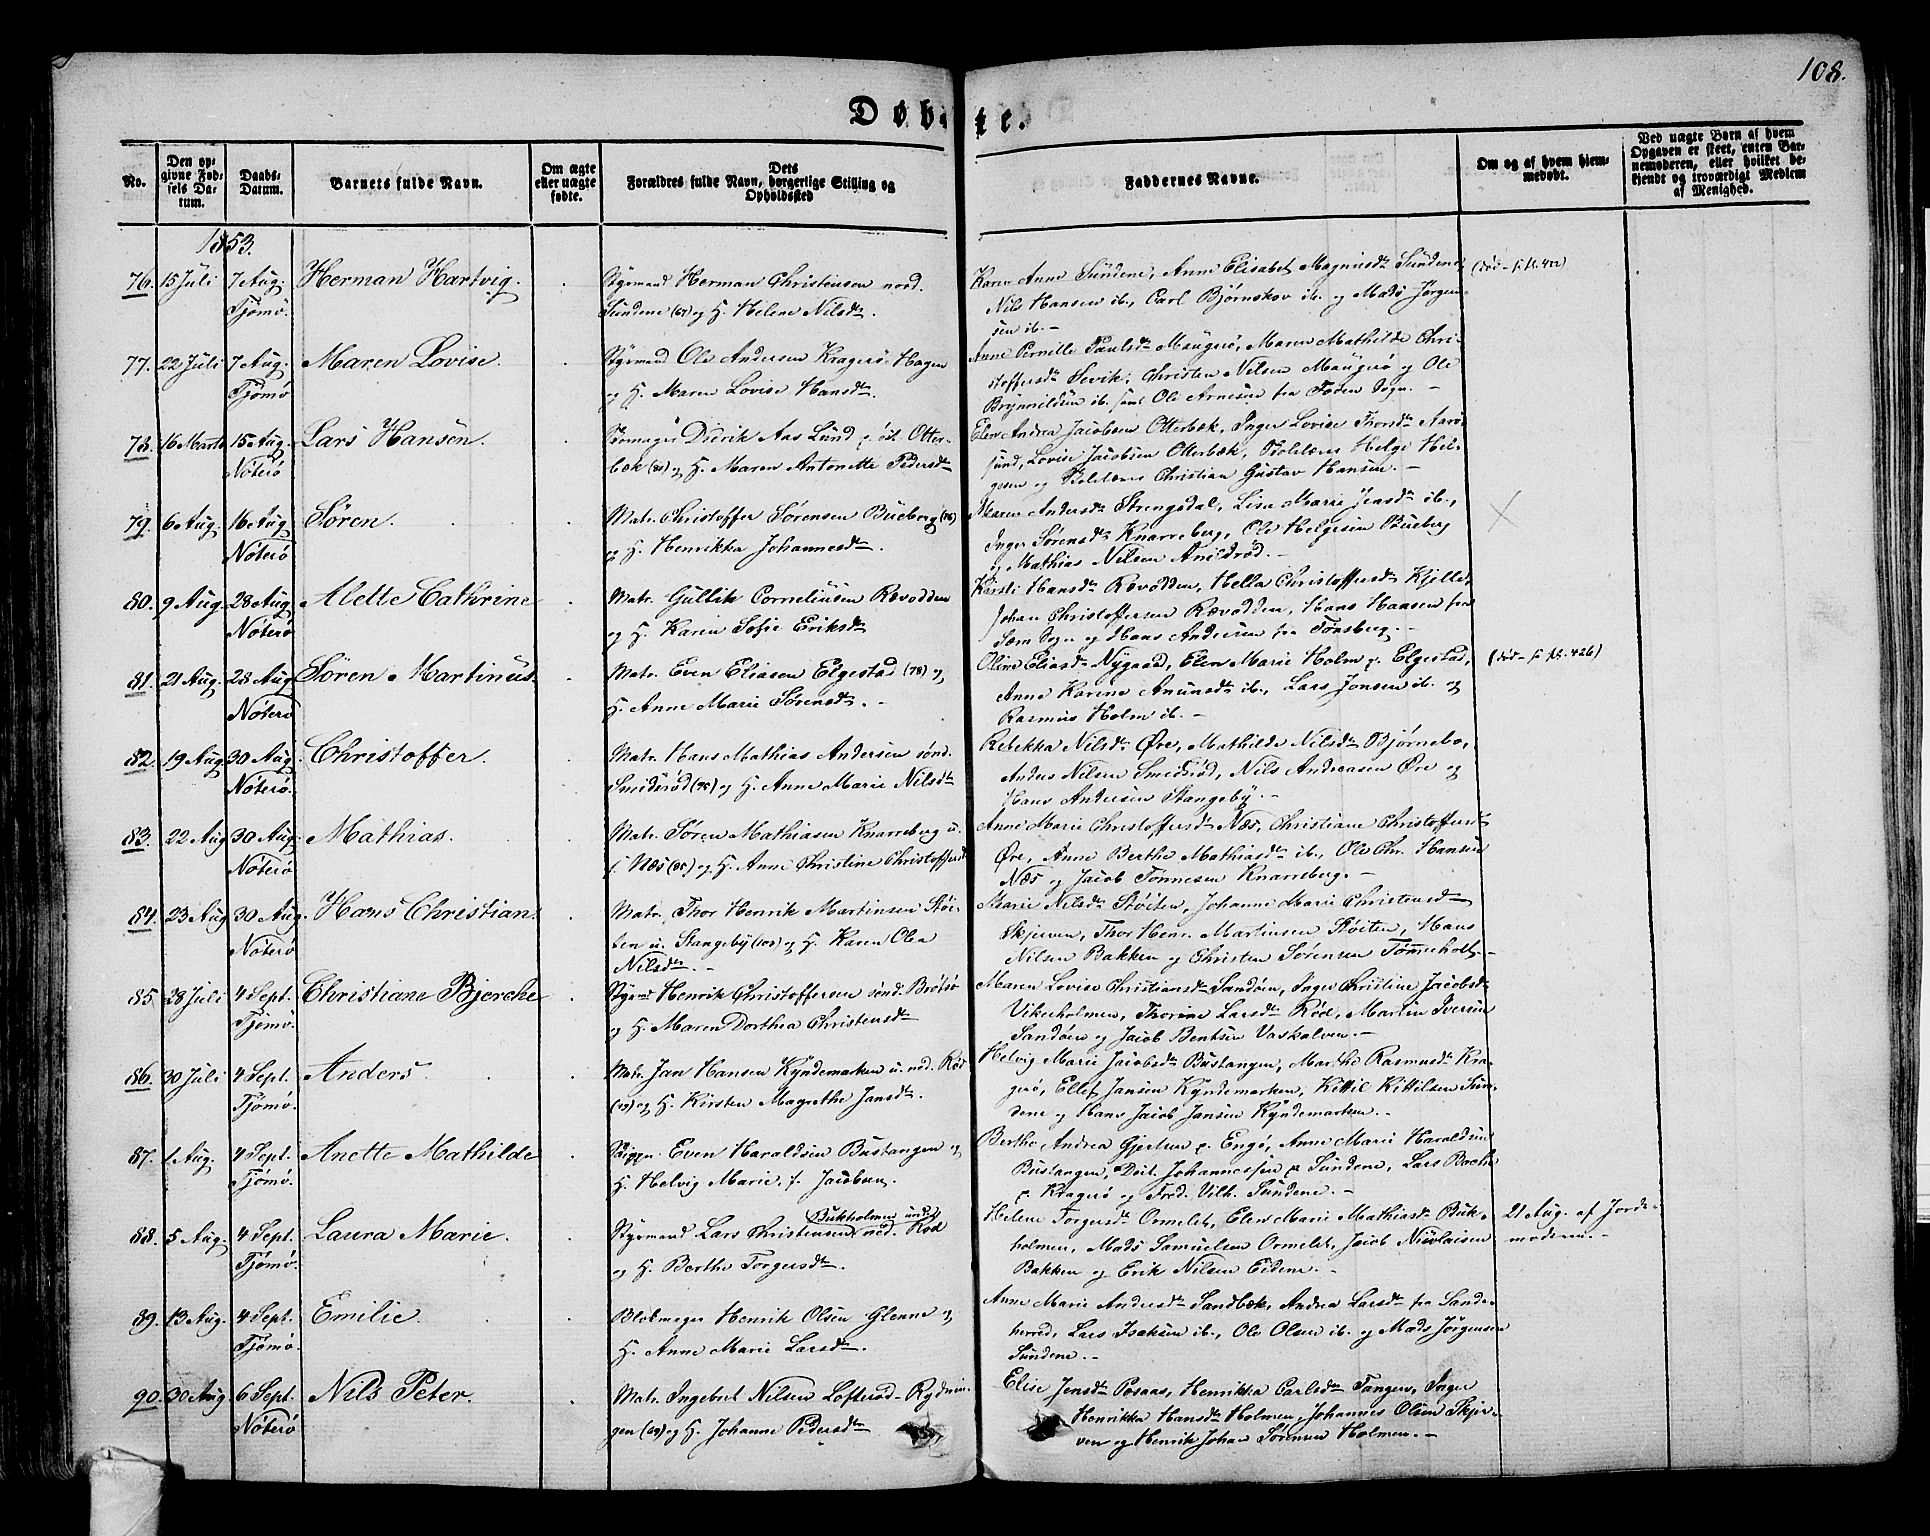 108.
Døbte.
No.
Den opgivne Fødsels Datum.
Daabs-Datum.
Barnets fulde Navn.
Om ægte eller uægte født.
Dets Forældres fulde Navn, borgerlige Stilling og Opholdssted
Faddernes Navne.
Om og af hvem hjemmedøbt.
Ved uægte Børn af hvem Opgaven er skeet, enten Barnemoderen, eller hvilket bekjendt og troværdigt Medlem af Menighed.
1853.
76. 15 Juli 7 Aug. Tjømø. Herman Hartvig.
Styrmand Herman Christensen nord.
Sundene (67) og H. Helene Nilsdtr.
Karen Anne Sundene, Anne Elisabet Magnusdtr Sundene,
Nils Hansen ib., Carl Bjørnskov ib. og Mads Jørgen-
sen ib. –
77. 22 Juli 7 Aug. Tjømø Maren Lovise.
Styrmand Ole Andersen Kragerø-Hagen
og H. Maren Lovise Hansdtr.
Anne Pernille Paulsdtr Maugerø, Maren Mathilde Chri-
stoffersdtr Sevik, Christen Nilsen Maugerø og Ole
Brynnildsen ib. samt Ole Arnesen fra Sogn. –
78. 16 Marts 15 Aug. Nøterø Lars Hansen.
Didrik Aas Lund p. øst. Otter-
bæk og H. Maren Antonette Pedersdtr
Elen Andrea Jacobsen Otterbæk, Inger Lovise Thorsdtr Aarø-
sund, Lovise Jacobsen Otterbæk, Helge Hel-
gesen og Christian Gustav Hansen. –
79. 6 Aug. 16 Aug. Nøterø Søren.
Matr. Christoffer Sørensen Bueberg (76)
og H. Henrikka Johannesdtr.
Maren Andersdtr Strengsdal, Lisa Marie Jensdtr ib.,
Inger Sørensdtr Knarreberg, Ole Helgesen Bueberg
og Mathias Nilsen
80. 9 Aug. 28 Aug. Nøterø Alette Cathrine
Matr. Gullik Corneliusen Rævodden
og H. Karen Sofie Eriksdtr
Kirsti Hansdtr Rævodden, Hella Christoffersdtr Kjelle,
Johan Christoffersen Rævodden, Hans Hansen fra
Sæm Sogn og Hans Andersen fra Tønsberg. –
81. 21 Aug. 28 Aug. Nøterø Søren Martinus.
Matr. Even Eliasen Elgestad (78) og
H. Anne Marie Sørensdtr. –
Oline Eliasdtr Nygaard, Elen Marie Holm p. Elgestad,
Anne Karine Amunsdtr ib., Lars Jonsen ib. og
Rasmus Holm ib. –
82. 19 Aug. 30 Aug. Nøterø. Christoffer.
Matr. Hans Mathias Andersen sønd.
Smiderød (95) og H. Anne Marie Nilsdtr
Rebekka Nilsdtr Øre, Mathilde Nilsdtr Bjørnebo,
Anders Nilsen Smidsrød, Nils Andreasen Øre og
Hans Andersen Stangeby. –
83. 22 Aug 30 Aug. Nøterø Mathias.
Matr. Søren Mathiasen Knarreberg u.
f. Næs (85) og H. Anne Christine Christoffersdtr
Anne Marie Christoffersdtr Næs, Christiane Christoffersdtr
Øre, Anne Berthe Mathiasdtr ib., Ole Chr. Hansen
Næs og Jacob Tønnesen Knarreberg. –
84. 23 Aug 30 Aug. Nøterø Hans Christian.
Matr. Thor Henrik Martinsen Støi-
ten u. Stangeby (103) og H. Karen Olea
Nilsdtr. –
Marie Nilsdtr Støiten, Johanne Marie Christensdtr
Skjerven, Thor Henr. Martinsen Støiten, Hans
Nilsen Bakken og Christen Sørensen Tømmeholt. –
85. 28 Juli 4 Sept. Tjømø. Christiane Bjercke
Styrmd Henrik Christoffersen sønd. Brøtsø
og H. Maren Dorthea Christensdtr
Maren Lovise Christiansdtr Sandøen, Inger Christine Jacobsdtr
Vikerholmen, Thorine Larsdtr Rød, Martin Iversen
Sandøen og Jacob Bentsen Vaskalven. –
86. 30 Juli 4 Sept. Tjømø. Anders.
Matr. Jan Hansen Kyndemarken u. ned. Rød
og H. Kirsten Magrethe Jansdtr.
Helvig Marie Jacobsdtr Bustangen, Marthe Rasmusdtr Kra-
gerø, Ellef Jansen Kyndemarken, Kittil Kittilsen Sun-
dene og Hans Jacob Jansen Kyndemarken. –
87. 1 Aug. 4 Sept. Tjømø. Anette Mathilde
Skippr. Even Haraldsen Bustangen og
H. Helvig Marie, f. Jacobsen.
Berthe Andrea Gjertsen p. Engø, Anne Marie Haraldsen
Bustangen, Johannessen p. Sundene, Lars Bache
p. Kragerø og Fred. Vilh. Sundene. –
88. 5 Aug. 4 Sept. Tjømø. Laura Marie.
Bukholmen under
Styrmand Lars Christensen ned. Rød
og H. Berthe Torgersdtr.
Helene Torgersdtr Ormelet, Elen Marie Mathiasdtr Buk-
holmen, Mads Samuelsen Ormelet, Jacob Nicolaisen
Bakken og Erik Nilsen Eidene. –
21 Aug. af Jorde-
moderen. –
89. 13 Aug. 4 Sept. Tjømø. Emilie.
Blokmager Henrik Olsen Glenne og
H. Anne Marie Larsdtr.
Anne Marie Andersdtr Sandbæk, Andrea Larsdtr fra Sande-
herred, Lars Isaksen ib., Ole Olsen ib. og Mads Jørgensen
Sundene. –
90. 30 Aug. 6 Sept. Nøterø Nils Peter.
Matr. Ingebret Nilsen Lofterød-Rydnin-
gen (69) og H. Johanne Pedersdtr
Elise Jensdtr Posaas, Henrikka Carlsdtr Tangen, Inger
Henrikka Hansdtr Holmen, Johannes Olsen Skjer-
ven og Henrik Johan Sørensen Holmen. –